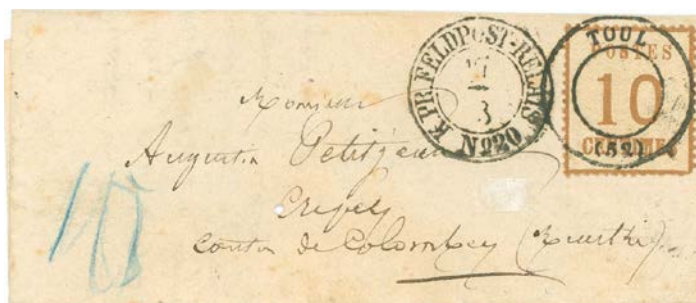 K.PR.FELDPOST-RELAIS
No20
TOUL
(52)
POSTES
10
CENTIMES
Monsieur
Augustin Petitjean
Crepey
Canton de Colombey (Meurthe)
10